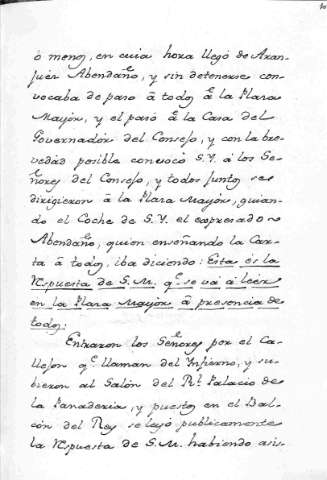 ò menos, en cuia hora llegó de Aran-
juéz Abendaño, y sin detenerse con-
vocaba de paso à todos à la Plaza
Mayòr, y el pasó à la Casa del
Governadòr del Consejo, y con la bre-
vedad posible convocó S.Y. à los Se-
ñores del Consejo, y todos juntos se
dirigieron à la Plaza Mayòr, guian-
do el Coche de S.Y. el expresado
Abendaño, quien enseñando la Car-
ta à todos, iba diciendo: Esta és la
Respuesta de S.M. qe. se và à leèr
en la Plaza Mayòr à presencia de
todos:
Entraron los Señores por el Ca-
llejon qe. llaman del Ynfierno, y su-
bieron al Salòn del Rl. Palacio de
la Panadería, y puestos en el Bal-
còn del Rey se leyó publicamente
la Respuesta de S.M. habiendo asis-